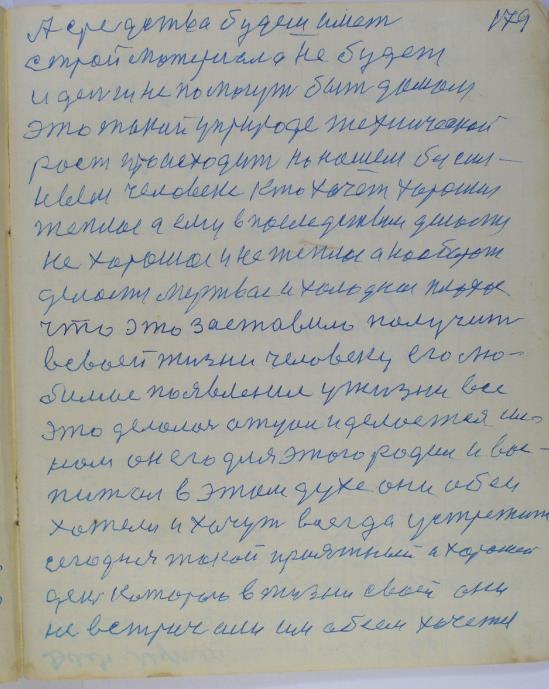 179
А средства будем имет
строй материала не будет
и ден ги не помогут быт домам
это такой у природе технической
рост происходит на нашем бысил-
ивем человеке кто хочет хорошия
теплое а ему в последствии делости
не хорошое и не теплое а наоборот
делости мертвое и холодное плохое
что это заставило получит
всвоей жизни человеку его лю-
бимое появление у жизни все
это делолося отцом и делоется сы-
ном он его для этого родил и вос-
питал в этом духе они обои
хотели и хочут всегда устрежит
сегодня такой приятный и хороший
ден которого в жизни своей они
не встричали им обоем хочется